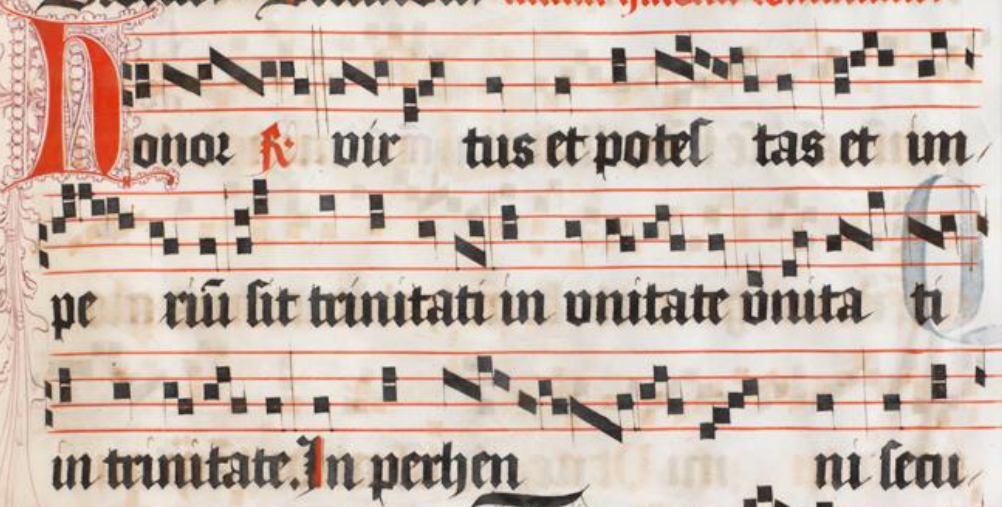 Honor R. virtus et potestas et im
periū sit trinitati in vnitate vnitati
in trinitate. In perhenni secu